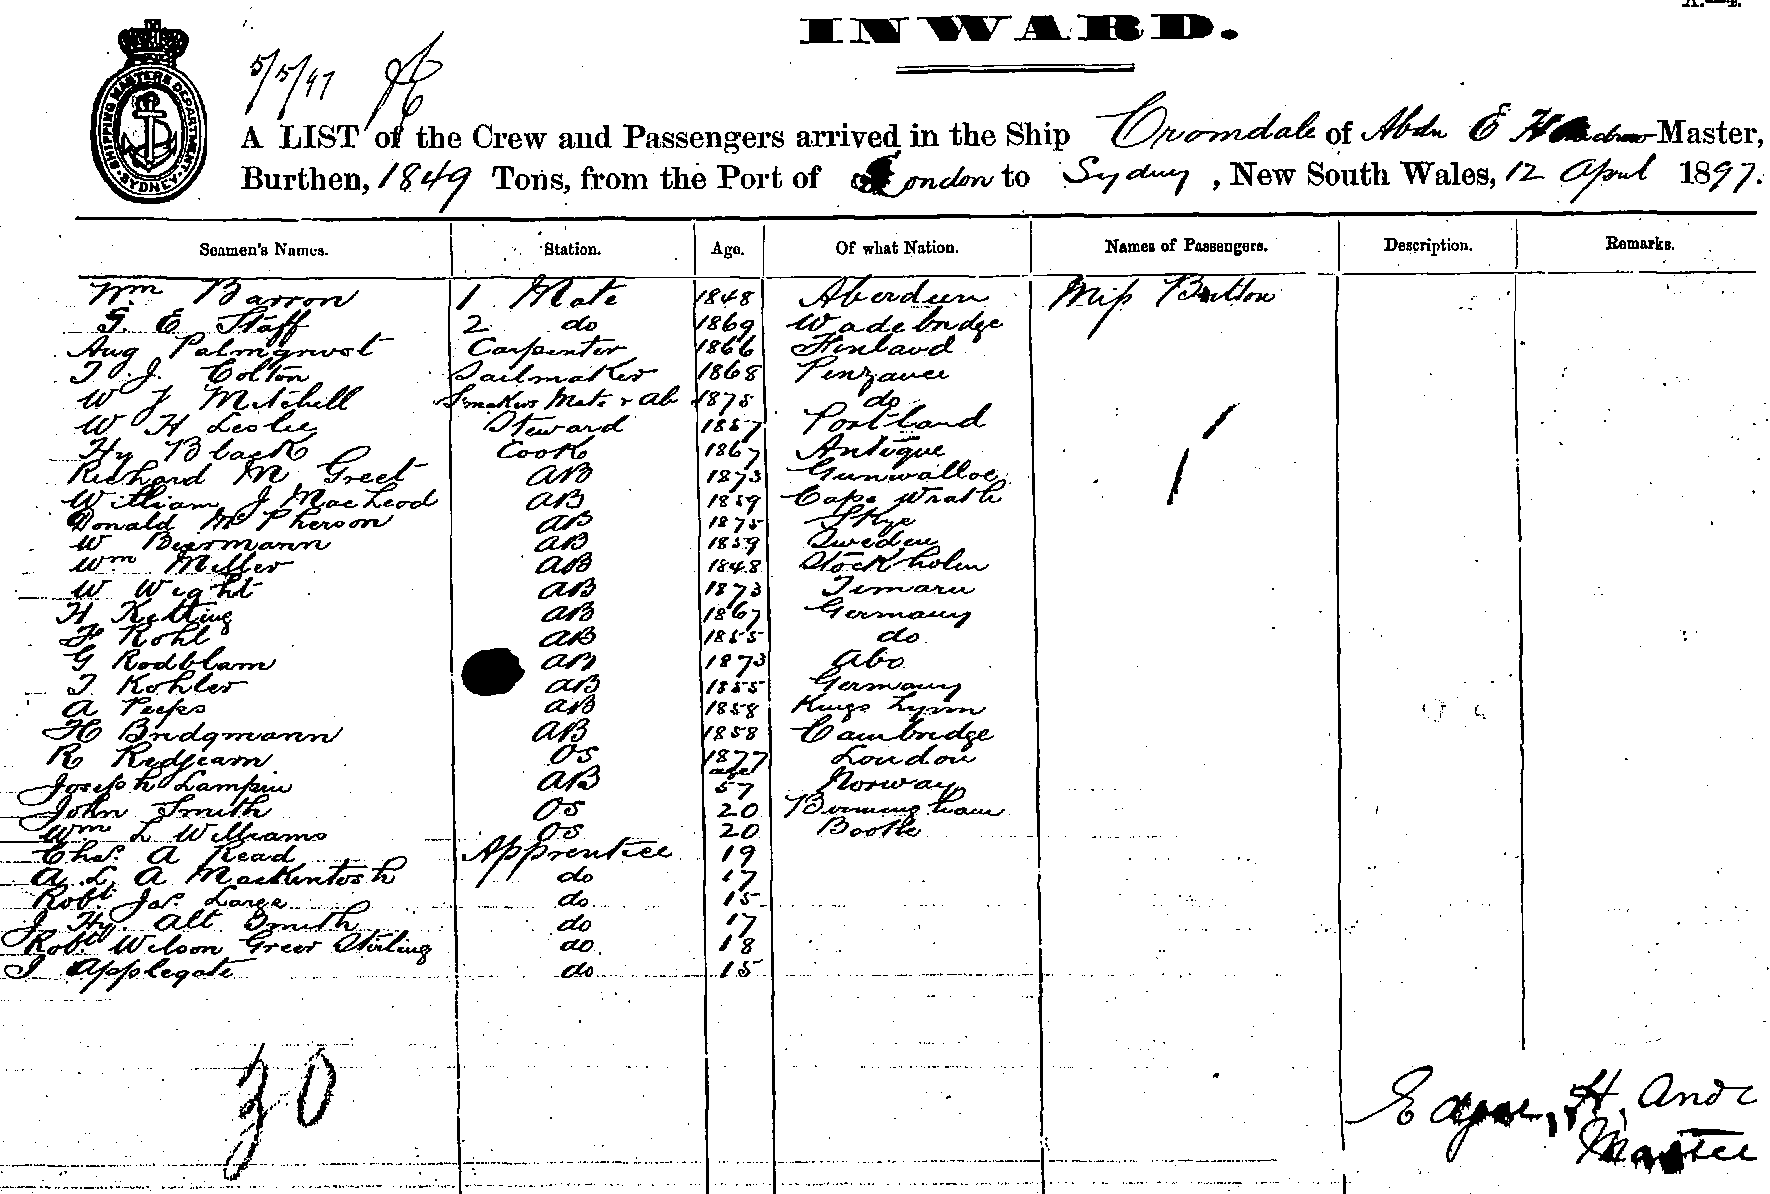 A.—4.
INWARD.
SHIPPING MASTERS DEPARTMENT SYDNEY
5/5/97
A LIST of the Crew and Passengers arrived in the Ship Cromdale of Abdn E H Master,
Burthen, 1849 Tons, from the Port of London to Sydney, New South Wales, 12 April 1897.
Seamen's Names. Station. Age. Of what Nation. Names of Passengers. Description. Remarks.
Wm Barron 1 Mate 1848 Aberdeen Miss Britton
E Staff 2 do 1869 Wadebridge
Aug Palmqvist Carpenter 1866 Finland
T. J. Colton Sailmaker 1868 Penzance
W J Mitchell Smakers Mate & Ab 1875 do
W H Leslie Steward 1857 Portland
Hy Black Cook 1867 Antigue
Richard M Greet AB 1873 Gunwalloe
William J MacLeod AB 1859 Cape Wrath
Donald McPherson AB 1875 Skye
W Biermann AB 1859 Sweden
Wm Miller AB 1848 Stockholm
W Wight AB 1873 Timaru
H Ketting AB 1867 Germany
F Kohl AB 1855 do
G Rodblam AB 1873 Abo
T Kohler AB 1855 Germany
A Peeps AB 1858 Kings Lynn
H Bridgmann AB 1858 Cambridge
R Redfearn OS 1877 London
Joseph Lampin AB age 57 Norway
John Smith OS 20 Birmingham
Wm L Williams OS 20 Bootle
Chas. A Read Apprentice 19
A. L. A Mackintosh do 17
Robt Jas. Large do 15
J Hy. Alt Smith do 17
Robt Wilson Greer Stirling do 18
J Applegate do 15
30
Edgar H. Andr
Master